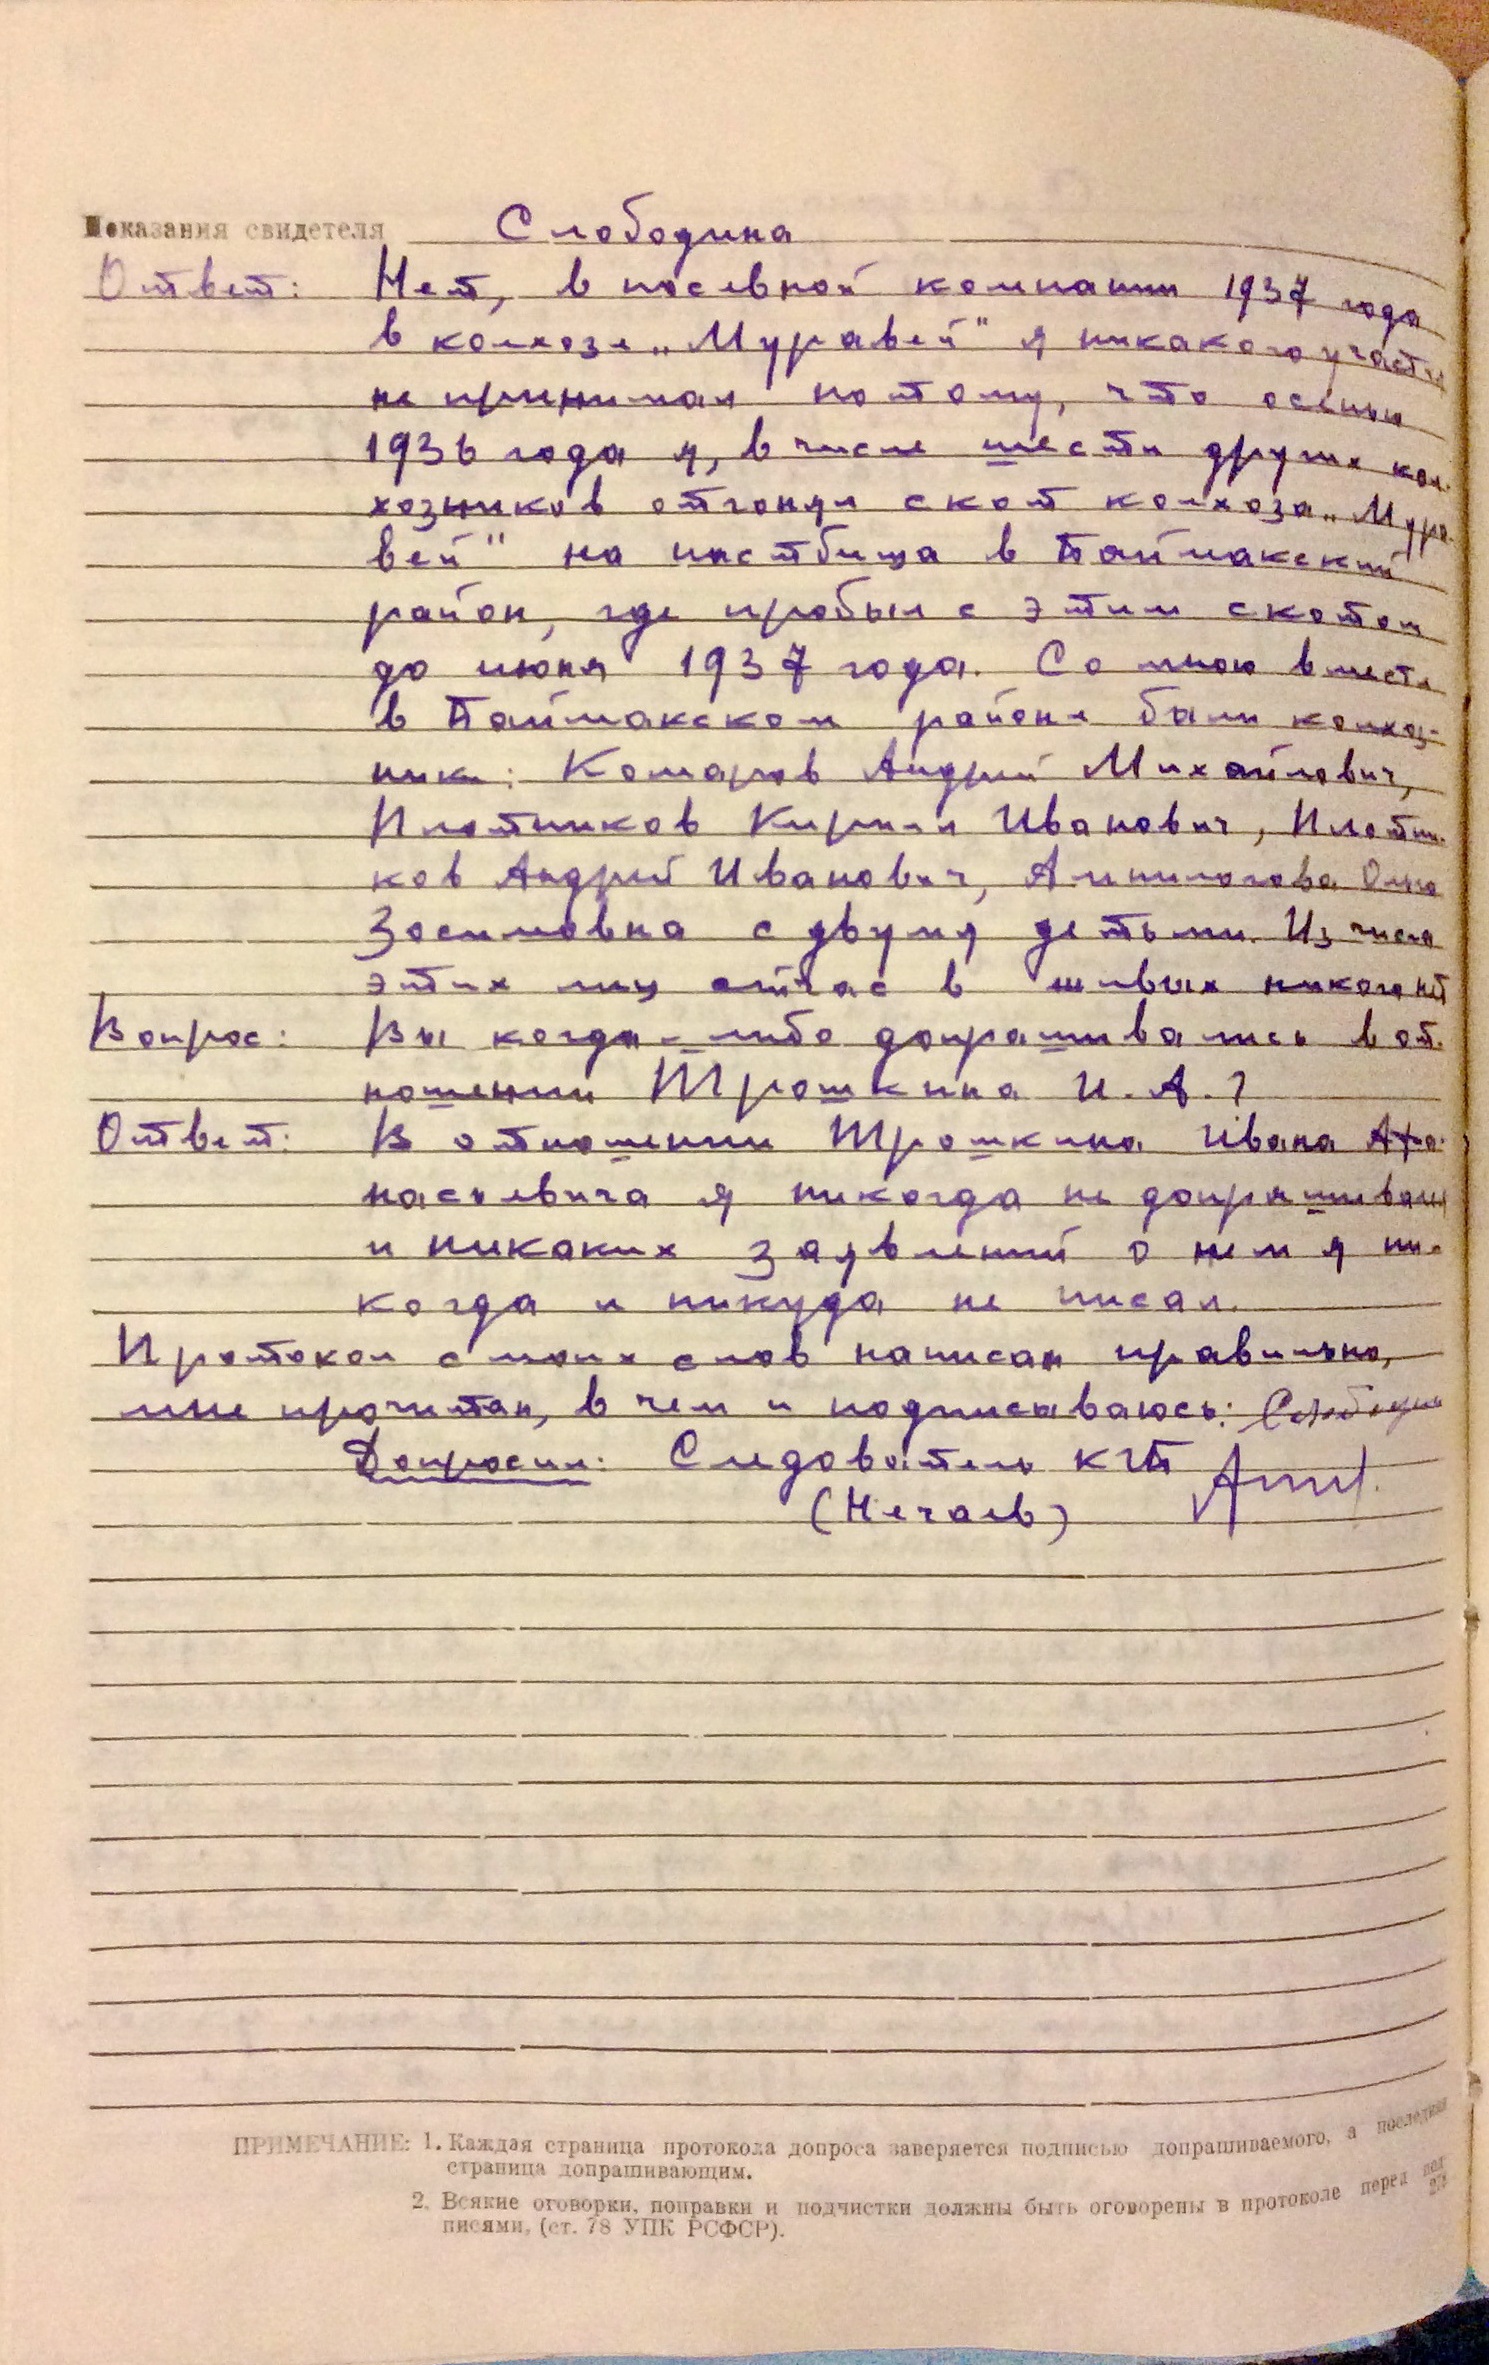 Показания свидетеля Слободина
Ответ: Нет, в посевной компании 1937 года
в колхозе „Муравей" я никакого участия
не принимал потому, что осенью
1936 года я, в числе шести других кол-
хозников отгонял скот колхоза „Мура-
вей" на пастбища в Баймакский
район, где пробыл с этим скотом
до июня 1937 года. Со мною вместе
в Баймакском районе были колхоз-
ники: Комаров Андрей Михайлович,
Плотников Кирилл Иванович, Плотни-
ков Андрей Иванович, Анпилогова
Зосимовна с двумя детьми. Из числа
этих лиц сейчас в живых никого нет
Вопрос: Вы когда-либо допрашивались в от-
ношении Трошкина И.А.?
Ответ: В отношении Трошкина Ивана Афа-
насьевича я никогда не допрашивался
и никаких заявлений о нем я ни-
когда и никуда не писал.
Протокол с моих слов написан правильно,
мне прочитан, в чем и подписываюсь: Слободин
Допросил: Следователь КГБ
(Нечаев)
ПРИМЕЧАНИЕ: 1. Каждая страница протокола допроса заверяется подписью допрашиваемого, а последняя
страница допрашивающим.
2. Всякие оговорки, поправки и подчистки должны быть оговорены в протоколе перед под-
писями, (ст. 78 УПК РСФСР).